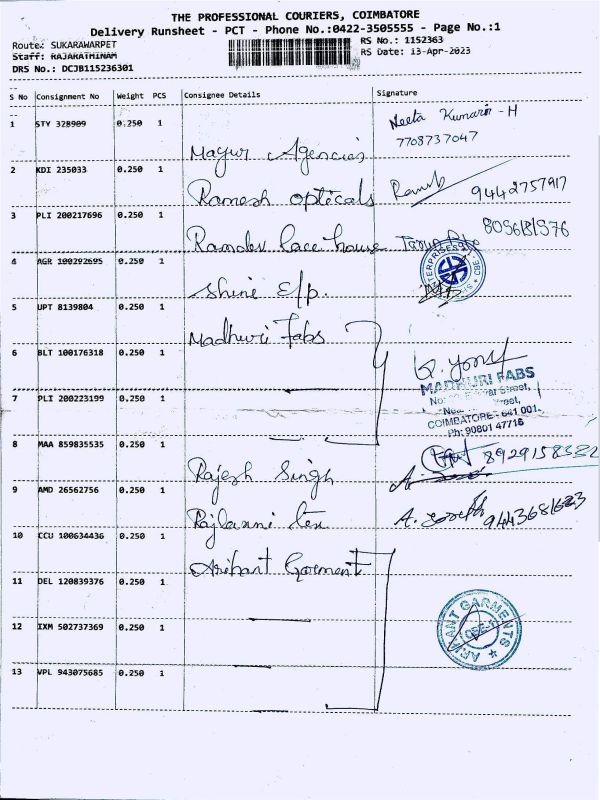 THE PROFESSIONAL COURIERS, COIMBATORE
Delivery Runsheet - PCT - Phone No.:0422-3505555 - Page No.:1
Route: SUKARAWARPET
RS No.: 1152363
Staff: RAJARATHINAM
RS Date: 13-Apr-2023
DRS No.: DCJB115236301
S No Consignment No Weight PCS Consignee Details Signature
1 STY 328909 0.250 1 Mayur Agencies Neeta Kumari - H
7708737047
2 KDI 235033 0.250 1 Ramesh opticals 9442757917
3 PLI 200217696 0.250 1 Ramdev Lace house
4 AGR 100292695 0.250 1 Shine E/p.
5 UPT 8139804 0.250 1 Madhuri Fabs
6 BLT 100176318 0.250 1
7 PLI 200223199 0.250 1
MADHURI FABS
Street,
COIMBATORE - 641 001.
Ph: 90801 47716
8 MAA 859835535 0.250 1 Rajesh Singh
9 AMD 26562756 0.250 1 Rajlaxmi tex A. Joseph
10 CCU 100634436 0.250 1 Arihant Garment
11 DEL 120839376 0.250 1
12 IXM 502737369 0.250 1
ARIHANT GARMENTS
CBE-1
13 VPL 943075685 0.250 1